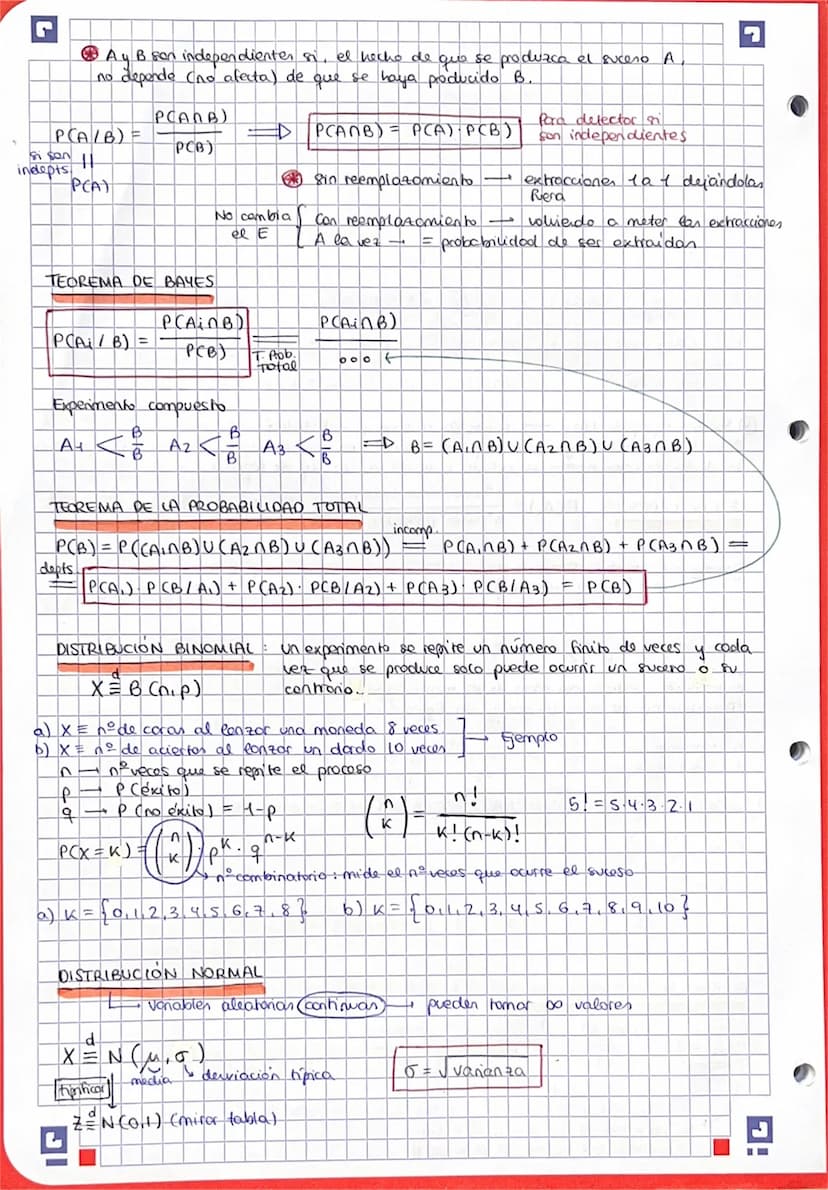 A y B son independientes si, el hecho de que se produzca el suceso A,
no depende (no afecta) de que se haya producido B.
P(A/B) = P(A∩B) / P(B) ⟹ P(A∩B) = P(A)·P(B) Para detectar si
son independientes
si son
indepts. || P(A)
Sin reemplazamiento → extracciones 1 a 1 dejándolas
fuera
No cambia
el E { Con reemplazamiento → volviendo a meter las extracciones
A la vez → = probabilidad de ser extraídas
TEOREMA DE BAYES
P(Ai / B) = P(Ai∩B) / P(B) = T. Prob. Total P(Ai∩B) / ooo
Experimento compuesto
A1 < B / B̅ A2 < B / B̅ A3 < B / B̅ ⟹ B = (A1∩B)∪(A2∩B)∪(A3∩B)
TEOREMA DE LA PROBABILIDAD TOTAL
incomp.
P(B) = P((A1∩B)∪(A2∩B)∪(A3∩B)) = P(A1∩B) + P(A2∩B) + P(A3∩B) =
depts.
= P(A1)·P(B/A1) + P(A2)·P(B/A2) + P(A3)·P(B/A3) = P(B)
DISTRIBUCIÓN BINOMIAL : un experimento se repite un número finito de veces y cada
vez que se produce solo puede ocurrir un suceso o su
contrario.
X ≡ᵈ B(n,p)
a) X ≡ nº de caras al lanzar una moneda 8 veces
b) X ≡ nº de aciertos al lanzar un dardo 10 veces ] → Ejemplo
n → nº veces que se repite el proceso
p → P(éxito)
q → P(no éxito) = 1-p
(n k) = n! / k!(n-k)! 5! = 5·4·3·2·1
P(X=K) = (n k)·p^k·q^n-k
→ nº combinatorio : mide el nº veces que ocurre el suceso
a) K = {0,1,2,3,4,5,6,7,8} b) K = {0,1,2,3,4,5,6,7,8,9,10}
DISTRIBUCIÓN NORMAL
→ variables aleatorias continuas → pueden tomar ∞ valores
X ≡ᵈ N(μ,σ)
media desviación típica
σ = √varianza
tipificar
Z ≡ᵈ N(0,1) (mirar tabla)